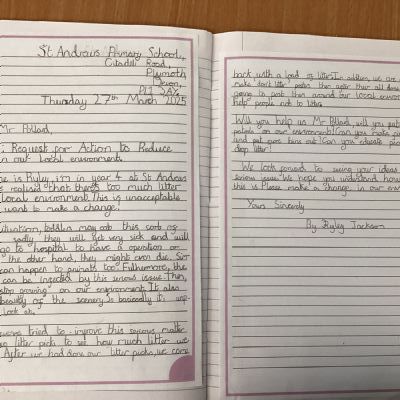 St Andrews Primary School,
Citadel Road,
Plymoth,
Devon,
PL1 3AY,
Thursday 27th March 2025
Mr Pollard,
: Request for Action to Reduce
in our Local environment.
e is Ruley, i'm in year 4 at St Andrews
realised that there's too much litter
local environment. This is unacceptable
want to make a change!
may eat this sort of
sadly they will get very sick and will
go to hospital to have a operation or
the other hand, they might even die. Sic
can happen to animals too. Futhermore, the
can be infected by this serious issue. Then,
stop growing on our environment. It also
beauty of the scenery is basically it
look at.
tried to improve this serious matter
litter picks to see how much litter we
After we had done our litter picks, we came
back with a load of litter. In addition, we are
make don't litter posters then after their all done,
going to post them around our local environ
help people not to litter.
Will you help us Mr Pollard, will you put
patrols on our environment? Can you make
and put more bins out? Can you educate people
drop litter?
We look forward to seeing your ideas
serious issue. We hope you understand how
this is. Please make a change in our envi
Yours Sincerly
By Ryley Jackson